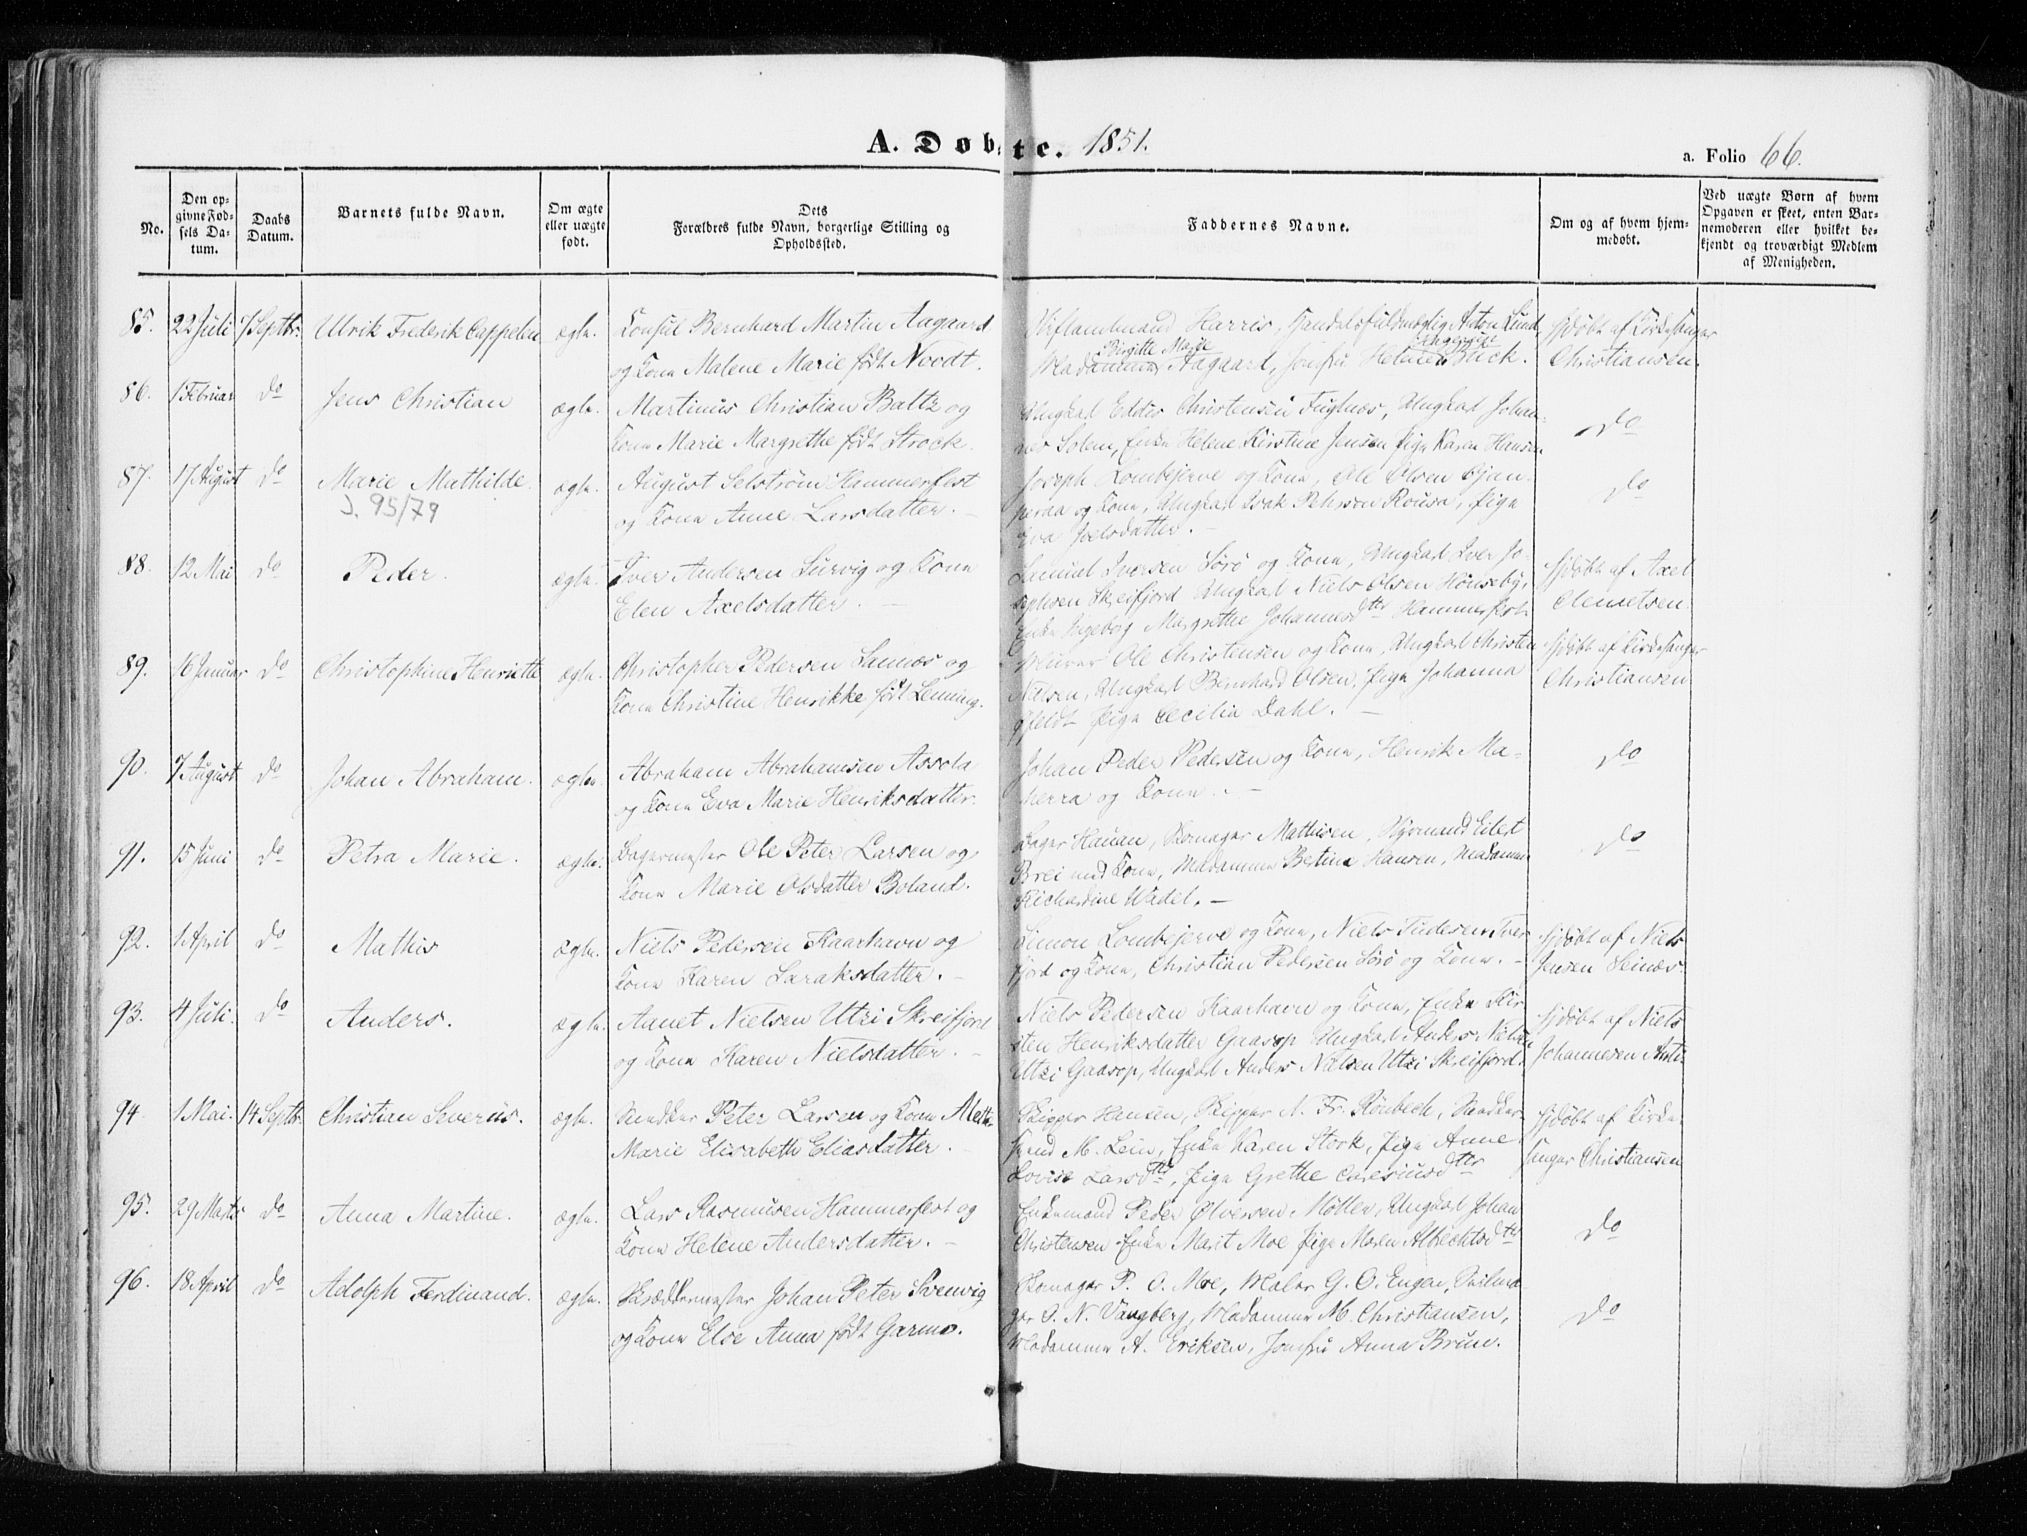 A. Døbte. 1851.
a. Folio 66.
No.
Den op-
givne Fød-
sels Da-
tum.
Daabs
Datum.
Barnets fulde Navn.
Om ægte
eller uægte
født.
Dets
Forældres fulde Navn, borgerlige Stilling og
Opholdssted.
Faddernes Navne.
Om og af hvem hjem-
medøbt.
Ved uægte Børn af hvem
Opgaven er skeet, enten Bar-
nemoderen eller hvilket be-
kjendt og troværdigt Medlem
af Menigheden.
85. 22 Juli 7 Septbr. Ulrik Frederik Cappelen ægte. Consul Bernhard Martin Aagaard
og Kone Malene Marie født Noodt.
Harris, Handelsfuldmægtig Anton Lund
Birgitte Marie
Madamme Aagaard, Jomfru Buck.
hjdøbt af Kirkesanger
Christiansen.
86. 1 Februar do Jens Christian ægte. Martinus Christian Baltz og
Kone Marie Margrethe født Strock.
Ungkarl Christensen Fuglnes, Ungkarl Johan-
nes Solem, Enke Helene Kirstine Jensen Pige Karen Hansen
do
87. 17 August do Marie Mathilde. ægte. August Selström Hammerfest
J. 95/79
og Kone Anne Larsdatter.
Joseph Kone, Ole Olsen
og Kone, Ungkarl Isak Petersen Rousa, Pige
Eva Joelsdatter.
do
88. 12 Mai do Peder. ægte. Iver Andersen Survig og Kone
Elen Axelsdatter.
Samuel Iversen Sörö og Kone, Ungkarl Iver Jo-
sephsen Skreifjord Ungkarl Niels Olsen Hönseby,
Enke Ingeborg Margrethe Johannesdtter Hammerfest
hjdøbt af Axel
Clemetsen.
89. 16 Januar do Christophine Henriette ægte. Christopher Pedersen Sannes og
Kone Christine Henrikke født Lenning.
Ole Christensen og Kone, Ungkarl Christen
Nilsen, Ungkarl Bernhard Olsen, Pige Johanna
Pige Cecilia Dahl.
hjdøbt af Kirkesanger
Christiansen
90. 7 August do Johan Abraham. ægte. Abraham Abrahamsen Assola
og Kone Eva Marie Henriksdatter.
Johan Peder Pedersen og Kone, Henrik Ma-
herra og Kone.
do
91. 15 Juni do Petra Marie. ægte. Bagermester Ole Peter Larsen og
Kone Marie Olsdatter Boland.
Bager Hauan, Skomager Mathisen, Eilert
Brei med Kone, Madamme Betine Hansen, Madamme
Richardine Wadel.
do
92. 1 April do Mathis ægte. Niels Pedersen Kaarhavn og
Kone Karen Saraksdatter.
Simon og Kone, Niels Tudesen Tver-
fjord og Kone, Christian Pedersen Sörö og Kone.
hjdøbt af Niels
Jensen Seinæs.
93. 4 Juli. do Anders. ægte. Aanet Nielsen Utzi Skreifjord
og Kone Karen Nielsdatter.
Niels Pedersen Kaarhavn og Kone, Enke Kir-
sten Henriksdatter Gaasop Ungkarl Anders Nielsen
Utzi Gaasop, Ungkarl Anders Nielsen Utzi Skreifjord.
hjdøbt af Niels
Johannesen Anti.
94. 1 Mai. 14 Septbr. Christian Severus. ægte. Snedker Peter Larsen og Kone Alette
Marie Elisabeth Eliasdatter.
Skipper Hansen, Skipper N. Fr. Rönbech, Snedker-
svend M. Lein, Enke Karen Stork, Pige Anne
Lovise Larsdtr, Pige Grethe Caresiusdtter
hjdøbt af Kirke-
sanger Christiansen
95. 29 Marts do Anna Martine. ægte. Lars Rasmusen Hammerfest og
Kone Helene Andersdatter.
Enkemand Peder Olversen Möller, Ungkarl Johan
Christensen Enke Marit Moe Pige Maren Albrechtsdtter
do
96. 18 April do Adolph Ferdinand. ægte. Skræddermester Johan Peter Svenvig
og Kone Else Anna født Garmo.
Skomager P. O. Moe, Maler G. O. Engen,
O. N. Vangberg, Madamme M. Christiansen,
Madamme A. Eriksen, Jomfru Anna Bruun.
do